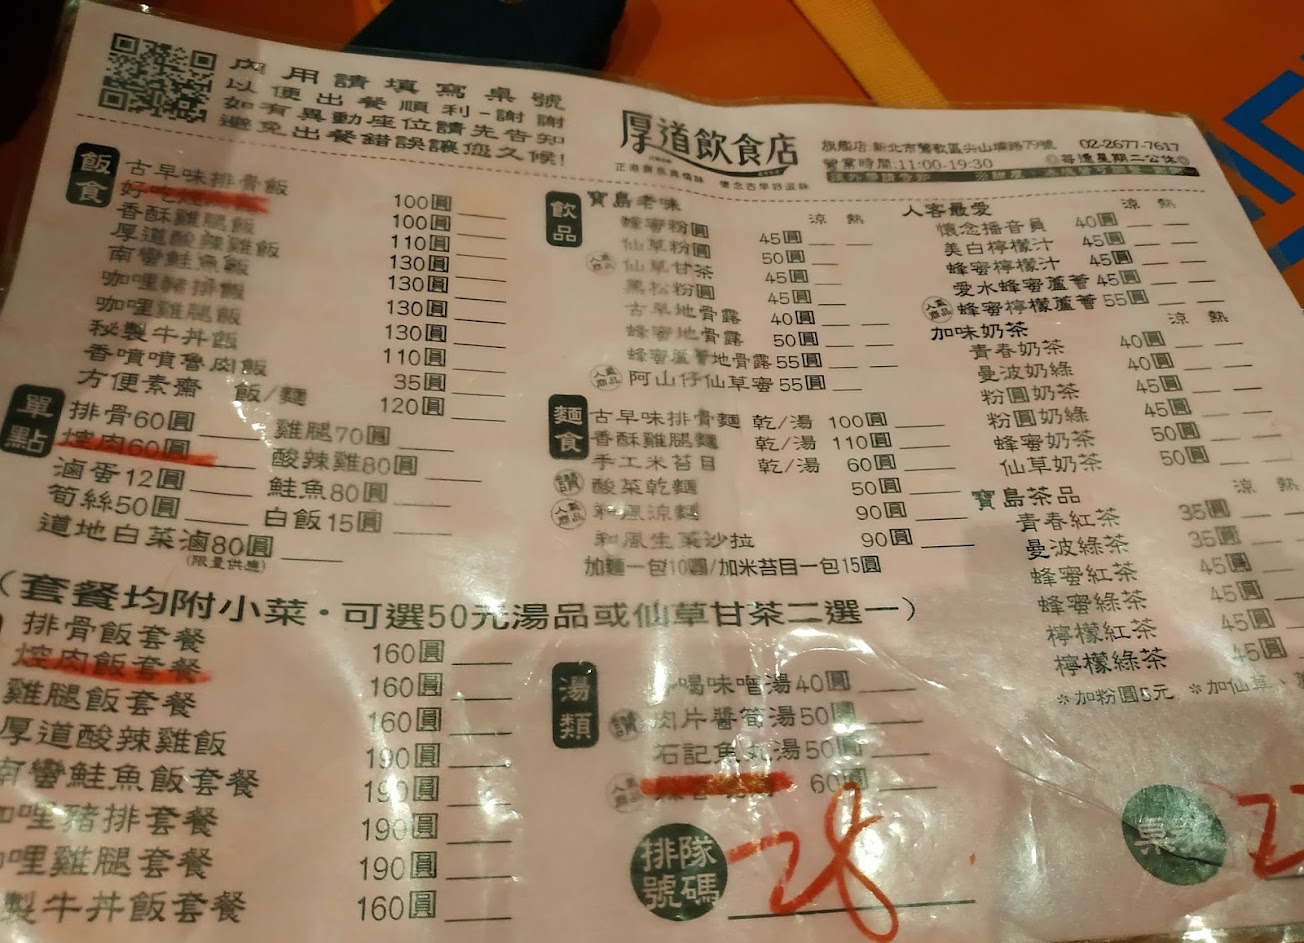 內用請填寫桌號
以便出餐順利-謝謝
如有異動座位請先告知
避免出餐錯誤讓您久候!
厚道飲食店
正港寶島農情味 懷念古早好滋味
旗艦店:新北市鶯歌區尖山埔路79號 02-2677-7617
營業時間:11:00-19:30 ◎每逢星期二公休◎
飯食
古早味排骨飯 100圓
100圓
香酥雞腿飯 110圓
厚道酸辣雞飯 130圓
南蠻鮭魚飯 130圓
咖哩豬排飯 130圓
咖哩雞腿飯 130圓
秘製牛丼飯 110圓
香噴噴魯肉飯 35圓
方便素齋 飯/麵 120圓
單點
排骨60圓 雞腿70圓
焢肉60圓 酸辣雞80圓
滷蛋12圓 鮭魚80圓
筍絲50圓 白飯15圓
道地白菜滷80圓
(限量供應)
(套餐均附小菜·可選50元湯品或仙草甘茶二選一)
排骨飯套餐 160圓
焢肉飯套餐 160圓
雞腿飯套餐 160圓
厚道酸辣雞飯 190圓
南蠻鮭魚飯套餐 190圓
咖哩豬排套餐 190圓
哩雞腿套餐 190圓
製牛丼飯套餐 160圓
飲品
寶島老味 涼 熱
蜂蜜粉圓 45圓
仙草粉圓 50圓
人氣商品 仙草甘茶 45圓
黑松粉圓 45圓
古早地骨露 40圓
蜂蜜地骨露 50圓
蜂蜜蘆薈地骨露 55圓
人氣商品 阿山仔仙草蜜 55圓
麵食
古早味排骨麵 乾/湯 100圓
香酥雞腿麵 乾/湯 110圓
手工米苔目 乾/湯 60圓
讚 酸菜乾麵 50圓
人氣商品 和風涼麵 90圓
和風生菜沙拉 90圓
加麵一包10圓/加米苔目一包15圓
湯類
喝味噌湯40圓
讚 肉片醬筍湯50圓
石記魚丸湯50圓
人氣商品 60圓
排隊號碼 28
人客最愛 涼 熱
懷念播音員 40圓
美白檸檬汁 45圓
蜂蜜檸檬汁 45圓
愛水蜂蜜蘆薈 45圓
人氣商品 蜂蜜檸檬蘆薈 55圓
加味奶茶 涼 熱
青春奶茶 40圓
曼波奶綠 40圓
粉圓奶茶 45圓
粉圓奶綠 45圓
蜂蜜奶茶 50圓
仙草奶茶 50圓
寶島茶品 涼 熱
青春紅茶 35圓
曼波綠茶 35圓
蜂蜜紅茶 45圓
蜂蜜綠茶 45圓
檸檬紅茶 45圓
檸檬綠茶 45圓
*加粉圓5元 *加仙草、
桌